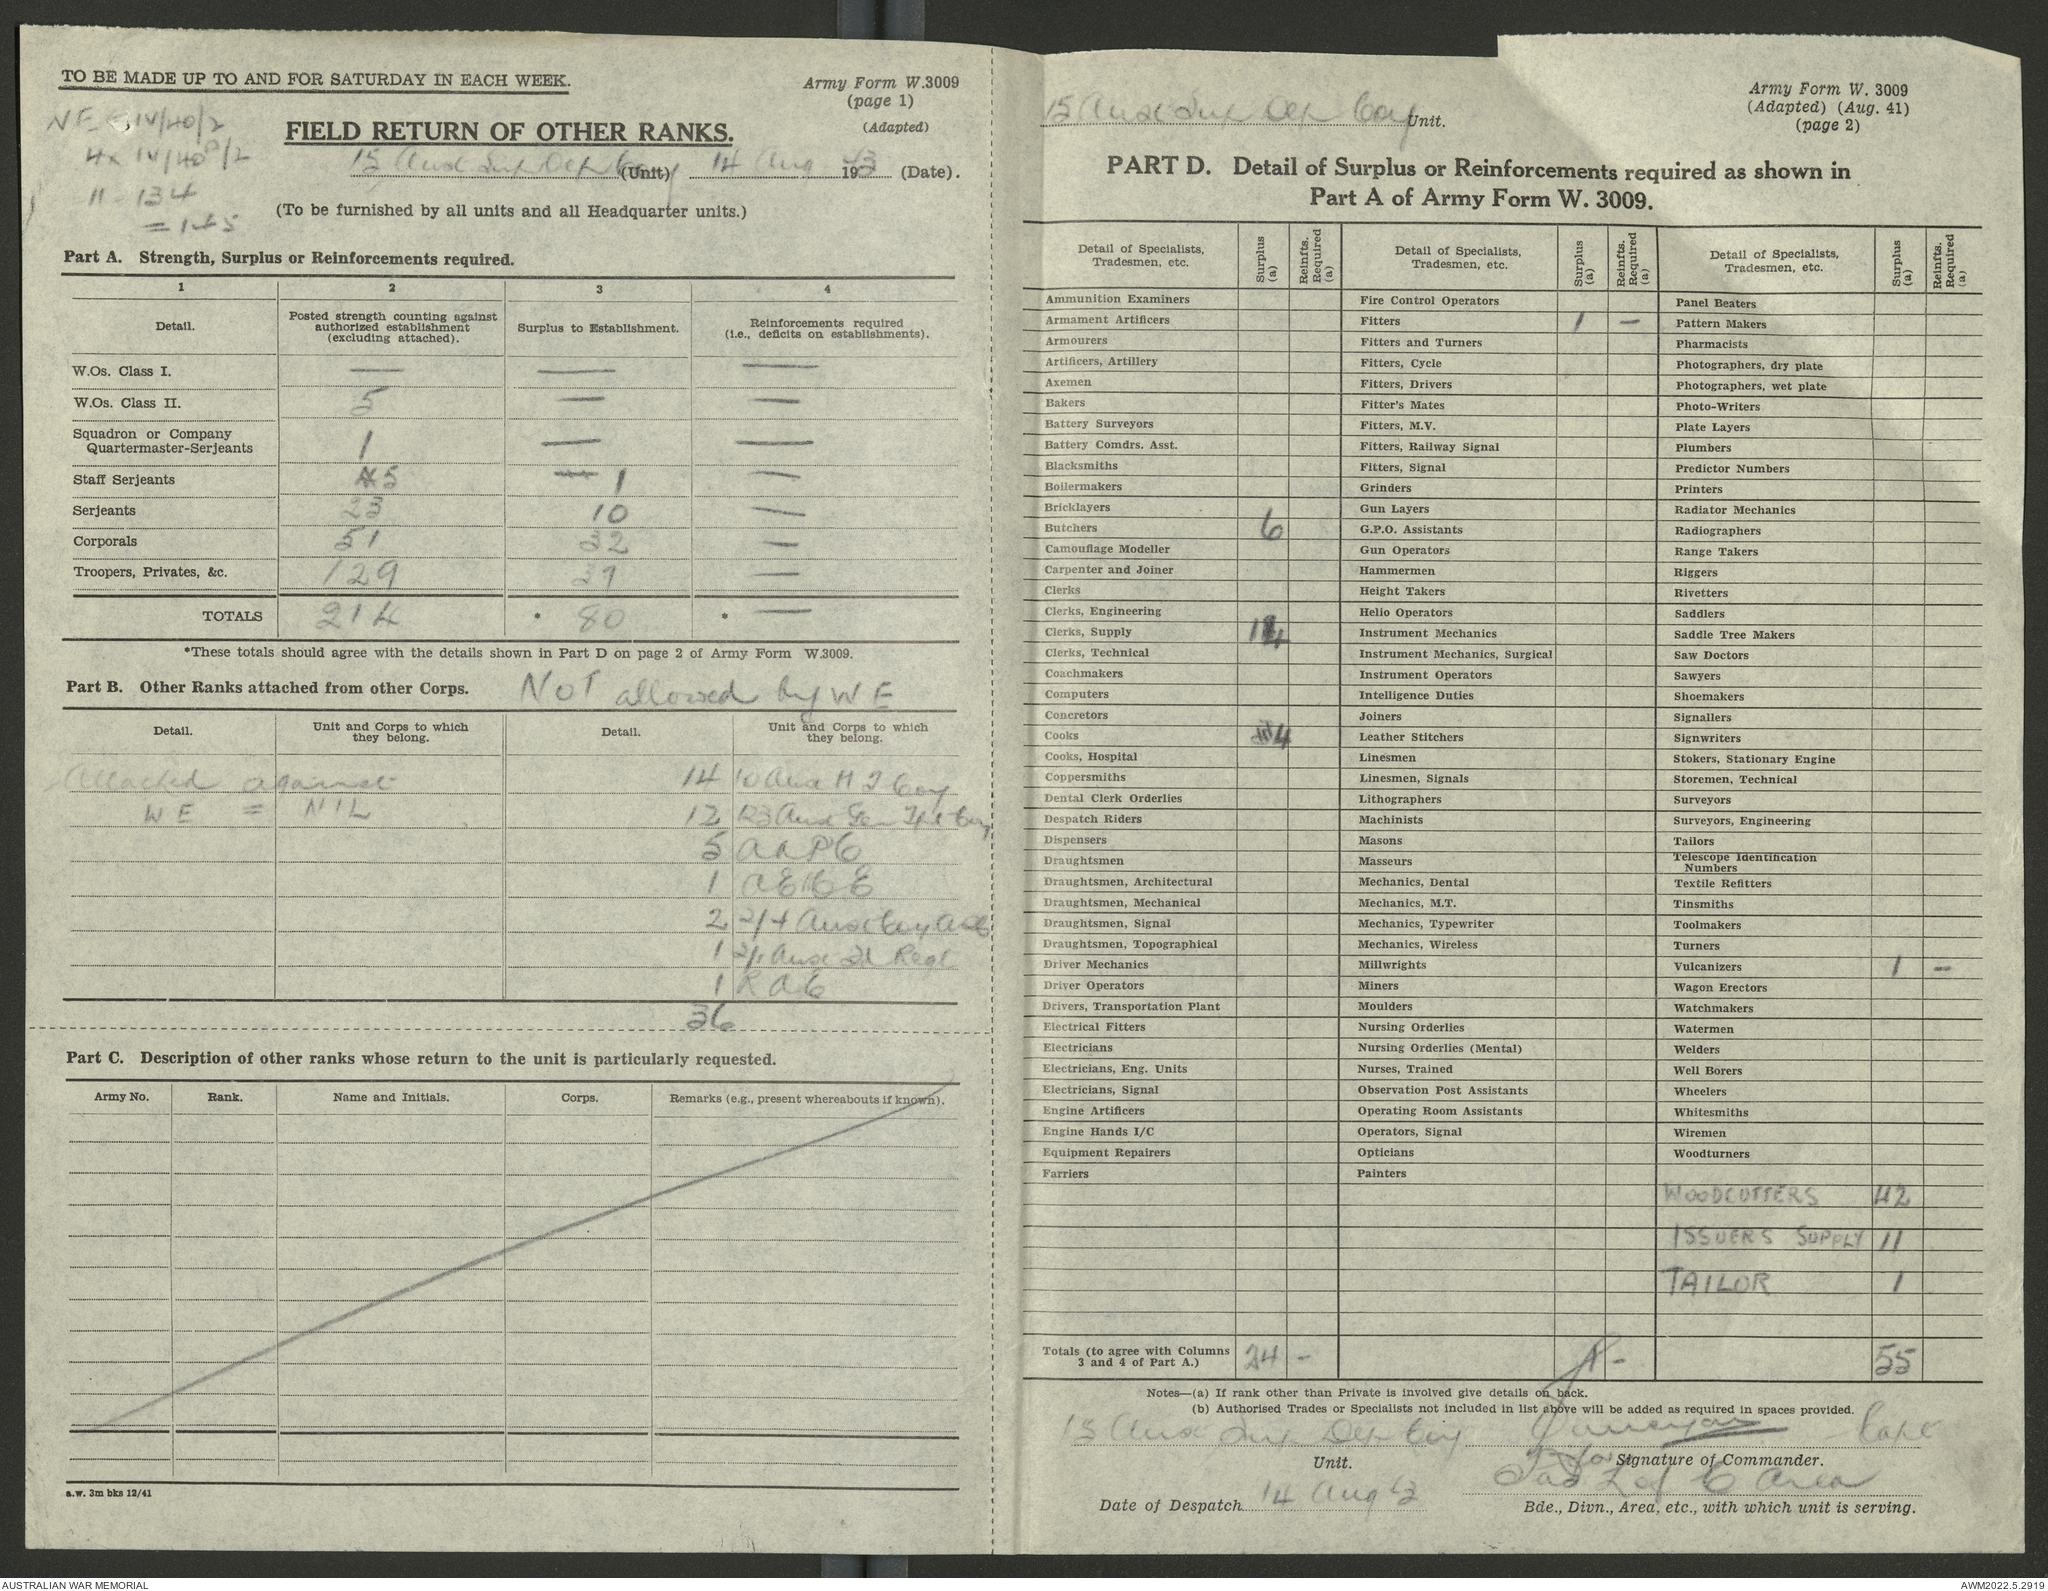 TO BE MADE UP TO AND FOR SATURDAY IN EACH WEEK.
Army Form W.3009
(page 1)
(Adapted)
IV/40/2
4x IV/40P/2
11 - 134
FIELD RETURN OF OTHER RANKS.
15 Aust Sup Dep Coy (Unit) 14 Aug 1943 (Date).
(To be furnished by all units and all Headquarter units.)
Part A. Strength, Surplus or Reinforcements required.
1 2 3 4
Detail. Posted strength counting against authorized establishment (excluding attached). Surplus to Establishment. Reinforcements required (i.e., deficits on establishments).
W.Os. Class I. — — —
W.Os. Class II. 5 — —
Squadron or Company Quartermaster-Serjeants 1 — —
Staff Serjeants 5 1 —
Serjeants 23 10 —
Corporals 51 32 —
Troopers, Privates, &c. 129 37 —
TOTALS 214 * 80 * —
*These totals should agree with the details shown in Part D on page 2 of Army Form W.3009.
Part B. Other Ranks attached from other Corps. NOT allowed by WE
Detail. Unit and Corps to which they belong. Detail. Unit and Corps to which they belong.
Attached against 14 10 Aust M T Coy
WE = NIL 12 123 Aust Gen Tpt Coy
5 AAPC
1
2 2/4 Aust Coy
1 2/1 Aust Regt
1
36
Part C. Description of other ranks whose return to the unit is particularly requested.
Army No. Rank. Name and Initials. Corps. Remarks (e.g., present whereabouts if known).
a.w. 3m bks 12/41
15 Aust Sup Dep Coy Unit.
Army Form W. 3009
(Adapted) (Aug. 41)
(page 2)
PART D. Detail of Surplus or Reinforcements required as shown in
Part A of Army Form W. 3009.
Detail of Specialists, Tradesmen, etc. Surplus (a) Reinfts. Required (a) Detail of Specialists, Tradesmen, etc. Surplus (a) Reinfts. Required (a) Detail of Specialists, Tradesmen, etc. Surplus (a) Reinfts. Required (a)
Ammunition Examiners Fire Control Operators Panel Beaters
Armament Artificers Fitters 1 — Pattern Makers
Armourers Fitters and Turners Pharmacists
Artificers, Artillery Fitters, Cycle Photographers, dry plate
Axemen Fitters, Drivers Photographers, wet plate
Bakers Fitter's Mates Photo-Writers
Battery Surveyors Fitters, M.V. Plate Layers
Battery Comdrs. Asst. Fitters, Railway Signal Plumbers
Blacksmiths Fitters, Signal Predictor Numbers
Boilermakers Grinders Printers
Bricklayers Gun Layers Radiator Mechanics
Butchers 6 G.P.O. Assistants Radiographers
Camouflage Modeller Gun Operators Range Takers
Carpenter and Joiner Hammermen Riggers
Clerks Height Takers Rivetters
Clerks, Engineering Helio Operators Saddlers
Clerks, Supply 14 Instrument Mechanics Saddle Tree Makers
Clerks, Technical Instrument Mechanics, Surgical Saw Doctors
Coachmakers Instrument Operators Sawyers
Computers Intelligence Duties Shoemakers
Concretors Joiners Signallers
Cooks 4 Leather Stitchers Signwriters
Cooks, Hospital Linesmen Stokers, Stationary Engine
Coppersmiths Linesmen, Signals Storemen, Technical
Dental Clerk Orderlies Lithographers Surveyors
Despatch Riders Machinists Surveyors, Engineering
Dispensers Masons Tailors
Draughtsmen Masseurs Telescope Identification Numbers
Draughtsmen, Architectural Mechanics, Dental Textile Refitters
Draughtsmen, Mechanical Mechanics, M.T. Tinsmiths
Draughtsmen, Signal Mechanics, Typewriter Toolmakers
Draughtsmen, Topographical Mechanics, Wireless Turners
Driver Mechanics Millwrights Vulcanizers 1 —
Driver Operators Miners Wagon Erectors
Drivers, Transportation Plant Moulders Watchmakers
Electrical Fitters Nursing Orderlies Watermen
Electricians Nursing Orderlies (Mental) Welders
Electricians, Eng. Units Nurses, Trained Well Borers
Electricians, Signal Observation Post Assistants Wheelers
Engine Artificers Operating Room Assistants Whitesmiths
Engine Hands I/C Operators, Signal Wiremen
Equipment Repairers Opticians Woodturners
Farriers Painters
WOODCUTTERS 42
ISSUERS SUPPLY 11
TAILOR 1
Totals (to agree with Columns 3 and 4 of Part A.) 24 - 1 - 55
Notes—(a) If rank other than Private is involved give details on back.
(b) Authorised Trades or Specialists not included in list above will be added as required in spaces provided.
15 Aust Sup Dep Coy Capt
Unit. for Signature of Commander.
L of C Area
Date of Despatch 14 Aug 43 Bde., Divn., Area, etc., with which unit is serving.
AUSTRALIAN WAR MEMORIAL
AWM2022.5.2919